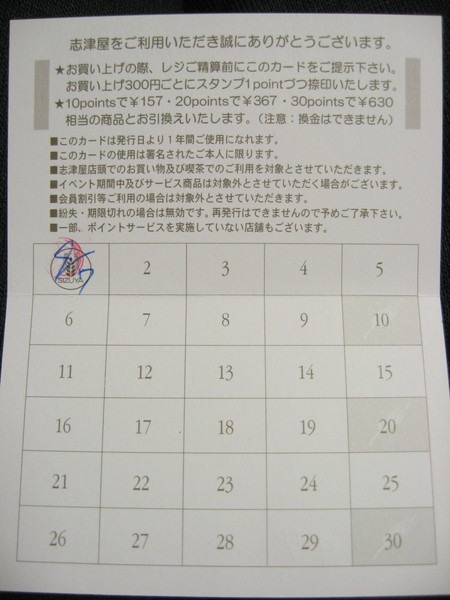 志津屋をご利用いただき誠にありがとうございます。
★お買い上げの際、レジご精算前にこのカードをご提示下さい。
お買い上げ300円ごとにスタンプ1pointづつ捺印いたします。
★10pointsで¥157・20pointsで¥367・30pointsで¥630
相当の商品とお引換えいたします。(注意:換金はできません)
■このカードは発行日より1年間ご使用になれます。
■このカードの使用は署名されたご本人に限ります。
■志津屋店頭でのお買い物及び喫茶でのご利用を対象とさせていただきます。
■イベント期間中及びサービス商品は対象外とさせていただく場合がございます。
■会員割引等ご利用の場合は対象外とさせていただきます。
■紛失・期限切れの場合は無効です。再発行はできませんので予めご了承下さい。
■一部、ポイントサービスを実施していない店舗もございます。
SIZUYA 2 3 4 5
6 7 8 9 10
11 12 13 14 15
16 17 18 19 20
21 22 23 24 25
26 27 28 29 30